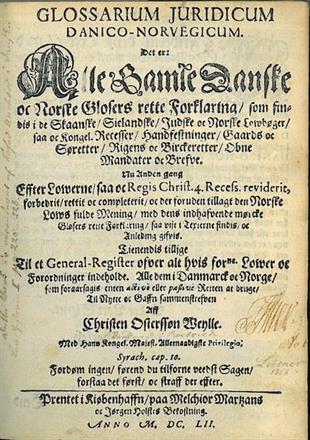 GLOSSARIUM JURIDICUM
DANICO-NORVEGICUM.
Det er:
Alle Gamle Danske
oc Norske Glosers rette Forklaring / som fin-
dis i de Skaanske / Sielandske / Judske oc Norske Lowbøger /
saa oc Kongel. Recesser / Handfestninger / Gaards oc
Søretter / Rigens oc Birckeretter / Obne
Mandater oc Brefve.
Nu Anden gang
Effter Lowerne / saa oc Regis Christ. 4. Recess. reviderit,
forbedrit / rettit oc completerit / oc der foruden tillagt den Norske
Lows fulde Mening / med dens indhafvende mørcke
Glosers rette Forklaring / saa vijt i Texterne findis / oc
Anledng gifvis.
Tienendis tillige
Til et General-Register ofver alt hvis forne. Lower oc
Forordninger indeholde. Alle dem i Danmarck oc Norge /
som foraarsagis enten activè eller passivè Retten at bruge /
Til Nytte oc Gaffn sammenskrefven
Aff
Christen Ostersson Weylle.
Med Hans Kongel. Majest. Allernaadigste Privilegio.
Syrach. cap. 10.
Fordøm ingen / førend du tilforne veedst Sagen /
forstaa det først / oc straff der effter.
Prentet i Kiøbenhaffn / paa Melchior Martzans
oc Jørgen Holstes Bekostning.
ANNO M, DC, LII.